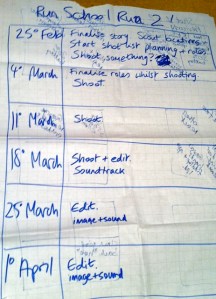 Run School Run 2
25th Feb Finalise story Scout locations
Start shot list planning + roles
Shoot something?
4th March Finalise roles whilst shooting
Shoot.
11th March Shoot
18th March Shoot + edit.
Soundtrack
25th March Edit.
image + sound
1st April Edit.
image + sound